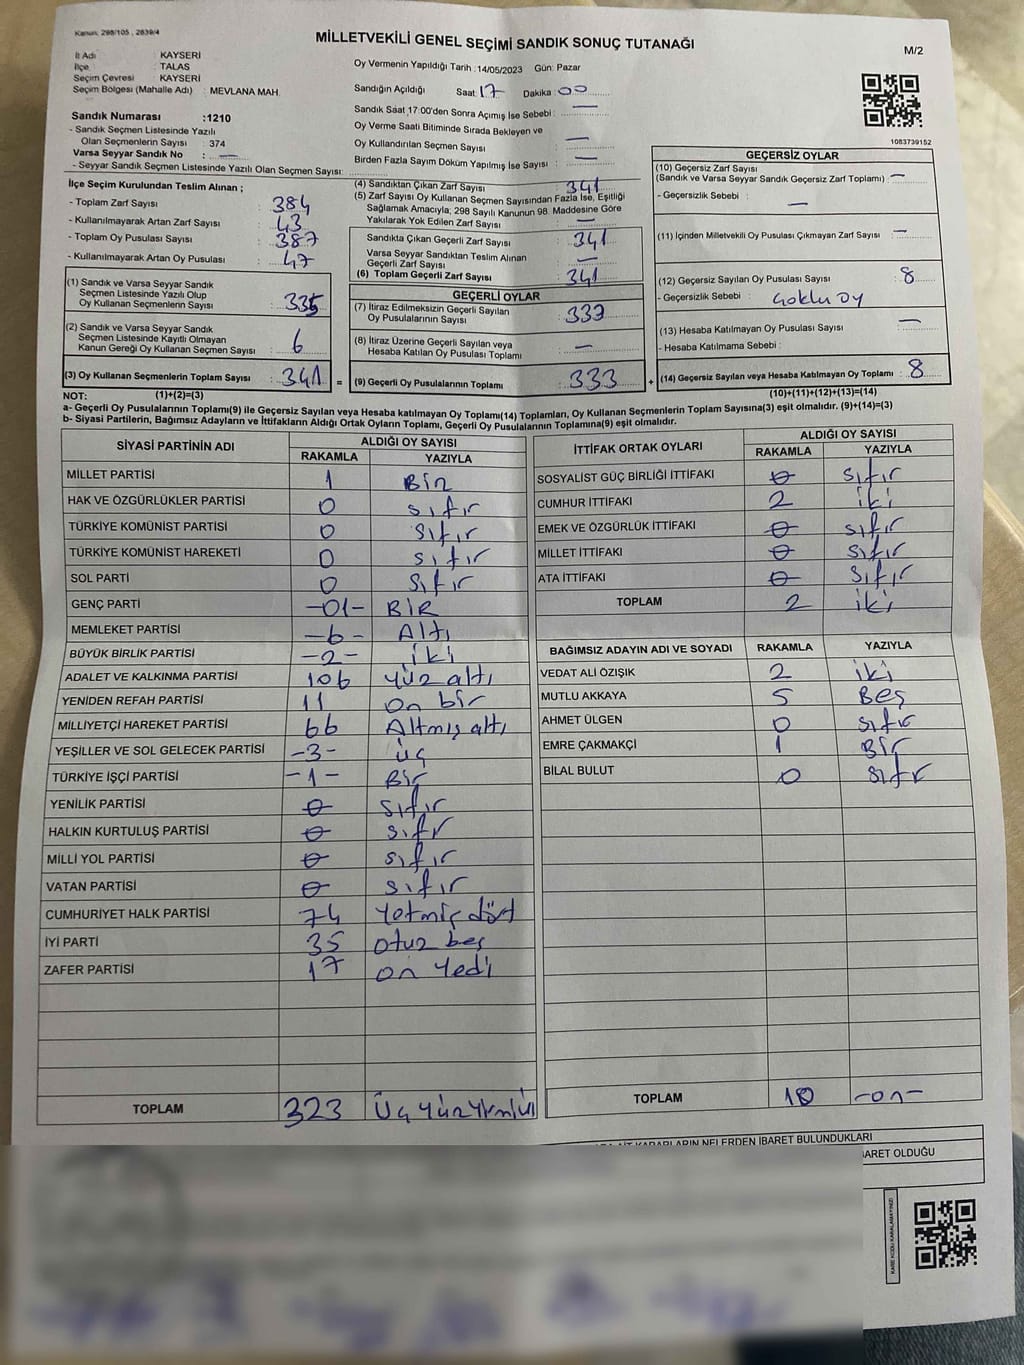 Kanun: 298/105 , 2839/4
MİLLETVEKİLİ GENEL SEÇİMİ SANDIK SONUÇ TUTANAĞI
M/2
İl Adı : KAYSERİ
İlçe : TALAS
Seçim Çevresi : KAYSERİ
Seçim Bölgesi (Mahalle Adı) : MEVLANA MAH.
Oy Vermenin Yapıldığı Tarih : 14/05/2023 Gün: Pazar
Sandığın Açıldığı Saat: 17 Dakika : 00
Sandık Saat 17:00'den Sonra Açımış İse Sebebi : —
Oy Verme Saati Bitiminde Sırada Bekleyen ve
Oy Kullandırılan Seçmen Sayısı : —
Birden Fazla Sayım Döküm Yapılmış İse Sayısı : —
1083739152
Sandık Numarası :1210
- Sandık Seçmen Listesinde Yazılı
Olan Seçmenlerin Sayısı : 374
Varsa Seyyar Sandık No : —
- Seyyar Sandık Seçmen Listesinde Yazılı Olan Seçmen Sayısı:
İlçe Seçim Kurulundan Teslim Alınan ;
- Toplam Zarf Sayısı : 384
- Kullanılmayarak Artan Zarf Sayısı : 43
- Toplam Oy Pusulası Sayısı : 387
- Kullanılmayarak Artan Oy Pusulası : 47
(1) Sandık ve Varsa Seyyar Sandık
Seçmen Listesinde Yazılı Olup
Oy Kullanan Seçmenlerin Sayısı : 335
(2) Sandık ve Varsa Seyyar Sandık
Seçmen Listesinde Kayıtlı Olmayan
Kanun Gereği Oy Kullanan Seçmen Sayısı : 6
(3) Oy Kullanan Seçmenlerin Toplam Sayısı : 341 =
(4) Sandıktan Çıkan Zarf Sayısı : 341
(5) Zarf Sayısı Oy Kullanan Seçmen Sayısından Fazla İse, Eşitliği
Sağlamak Amacıyla; 298 Sayılı Kanunun 98. Maddesine Göre
Yakılarak Yok Edilen Zarf Sayısı : —
Sandıkta Çıkan Geçerli Zarf Sayısı : 341
Varsa Seyyar Sandıktan Teslim Alınan
Geçerli Zarf Sayısı : —
(6) Toplam Geçerli Zarf Sayısı : 341
GEÇERLİ OYLAR
(7) İtiraz Edilmeksizin Geçerli Sayılan
Oy Pusulalarının Sayısı : 333
(8) İtiraz Üzerine Geçerli Sayılan veya
Hesaba Katılan Oy Pusulası Toplamı : —
(9) Geçerli Oy Pusulalarının Toplamı : 333 +
GEÇERSİZ OYLAR
(10) Geçersiz Zarf Sayısı
(Sandık ve Varsa Seyyar Sandık Geçersiz Zarf Toplamı) : —
- Geçersizlik Sebebi : —
(11) İçinden Milletvekili Oy Pusulası Çıkmayan Zarf Sayısı : —
(12) Geçersiz Sayılan Oy Pusulası Sayısı : 8
- Geçersizlik Sebebi : Çoklu oy
(13) Hesaba Katılmayan Oy Pusulası Sayısı : —
- Hesaba Katılmama Sebebi :
(14) Geçersiz Sayılan veya Hesaba Katılmayan Oy Toplamı : 8
NOT: (1)+(2)=(3)
(10)+(11)+(12)+(13)=(14)
a- Geçerli Oy Pusulalarının Toplamı(9) ile Geçersiz Sayılan veya Hesaba katılmayan Oy Toplamı(14) Toplamları, Oy Kullanan Seçmenlerin Toplam Sayısına(3) eşit olmalıdır. (9)+(14)=(3)
b- Siyasi Partilerin, Bağımsız Adayların ve İttifakların Aldığı Ortak Oyların Toplamı, Geçerli Oy Pusulalarının Toplamına(9) eşit olmalıdır.
SİYASİ PARTİNİN ADI ALDIĞI OY SAYISI
RAKAMLA YAZIYLA
MİLLET PARTİSİ 1 Bir
HAK VE ÖZGÜRLÜKLER PARTİSİ 0 sıfır
TÜRKİYE KOMÜNİST PARTİSİ 0 sıfır
TÜRKİYE KOMÜNİST HAREKETİ 0 sıfır
SOL PARTİ 0 sıfır
GENÇ PARTİ -01- BİR
MEMLEKET PARTİSİ -6- Altı
BÜYÜK BİRLİK PARTİSİ -2- iki
ADALET VE KALKINMA PARTİSİ 106 yüz altı
YENİDEN REFAH PARTİSİ 11 on bir
MİLLİYETÇİ HAREKET PARTİSİ 66 Altmış altı
YEŞİLLER VE SOL GELECEK PARTİSİ -3- üç
TÜRKİYE İŞÇİ PARTİSİ -1- Bir
YENİLİK PARTİSİ 0 sıfır
HALKIN KURTULUŞ PARTİSİ 0 sıfır
MİLLİ YOL PARTİSİ 0 sıfır
VATAN PARTİSİ 0 sıfır
CUMHURİYET HALK PARTİSİ 74 Yetmiş dört
İYİ PARTİ 35 otuz beş
ZAFER PARTİSİ 17 on Yedi
TOPLAM 323
İTTİFAK ORTAK OYLARI ALDIĞI OY SAYISI
RAKAMLA YAZIYLA
SOSYALİST GÜÇ BİRLİĞİ İTTİFAKI 0 sıfır
CUMHUR İTTİFAKI 2 iki
EMEK VE ÖZGÜRLÜK İTTİFAKI 0 sıfır
MİLLET İTTİFAKI 0 sıfır
ATA İTTİFAKI 0 sıfır
TOPLAM 2 iki
BAĞIMSIZ ADAYIN ADI VE SOYADI RAKAMLA YAZIYLA
VEDAT ALİ ÖZIŞIK 2 iki
MUTLU AKKAYA 5 Beş
AHMET ÜLGEN 0 sıfır
EMRE ÇAKMAKÇİ 1 Bir
BİLAL BULUT 0 sıfır
TOPLAM 10 -on-
KARARLARIN NELERDEN İBARET BULUNDUKLARI
OLDUĞU
KARE KODU KARALAMAYINIZ!